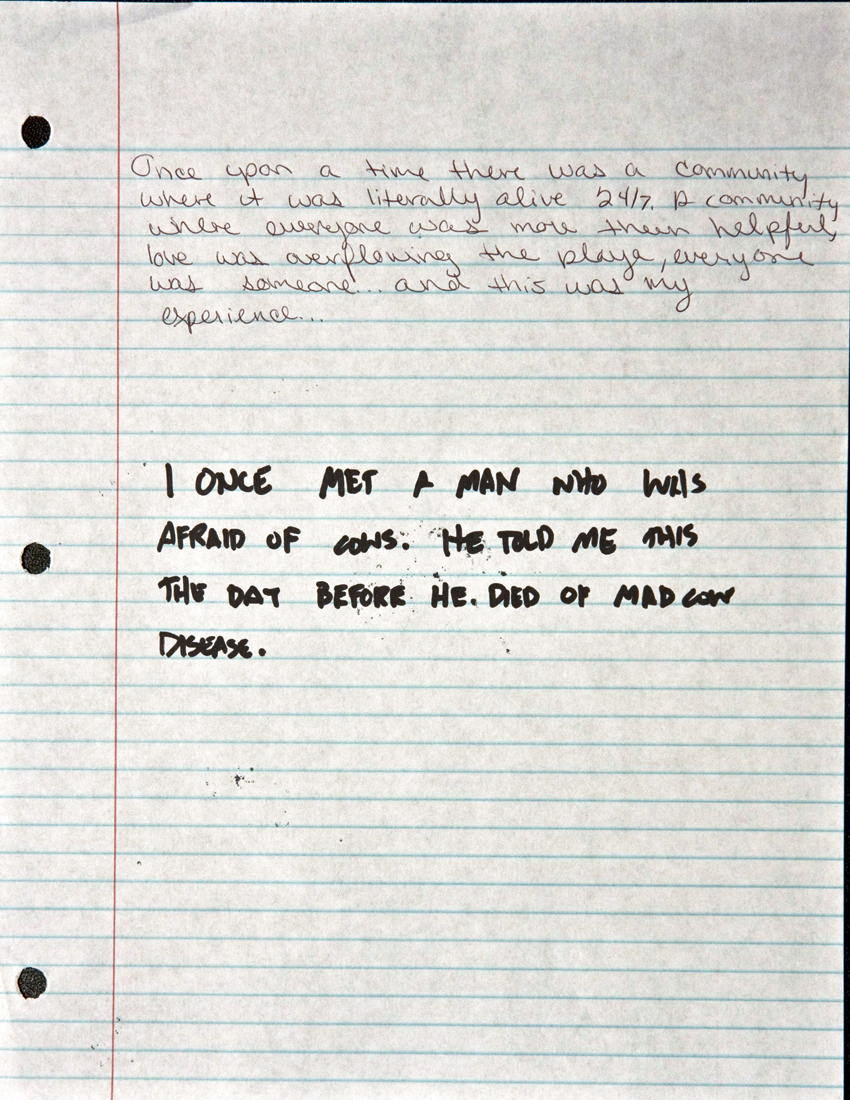 Once upon a time there was a community
where it was literally alive 24/7. A community
where everyone was more then helpful,
love was overflowing the playa, everyone
was someone... and this was my
experience...
I ONCE MET A MAN WHO WAS
AFRAID OF COWS. HE TOLD ME THIS
THE DAY BEFORE HE. DIED OF MAD COW
DISEASE.